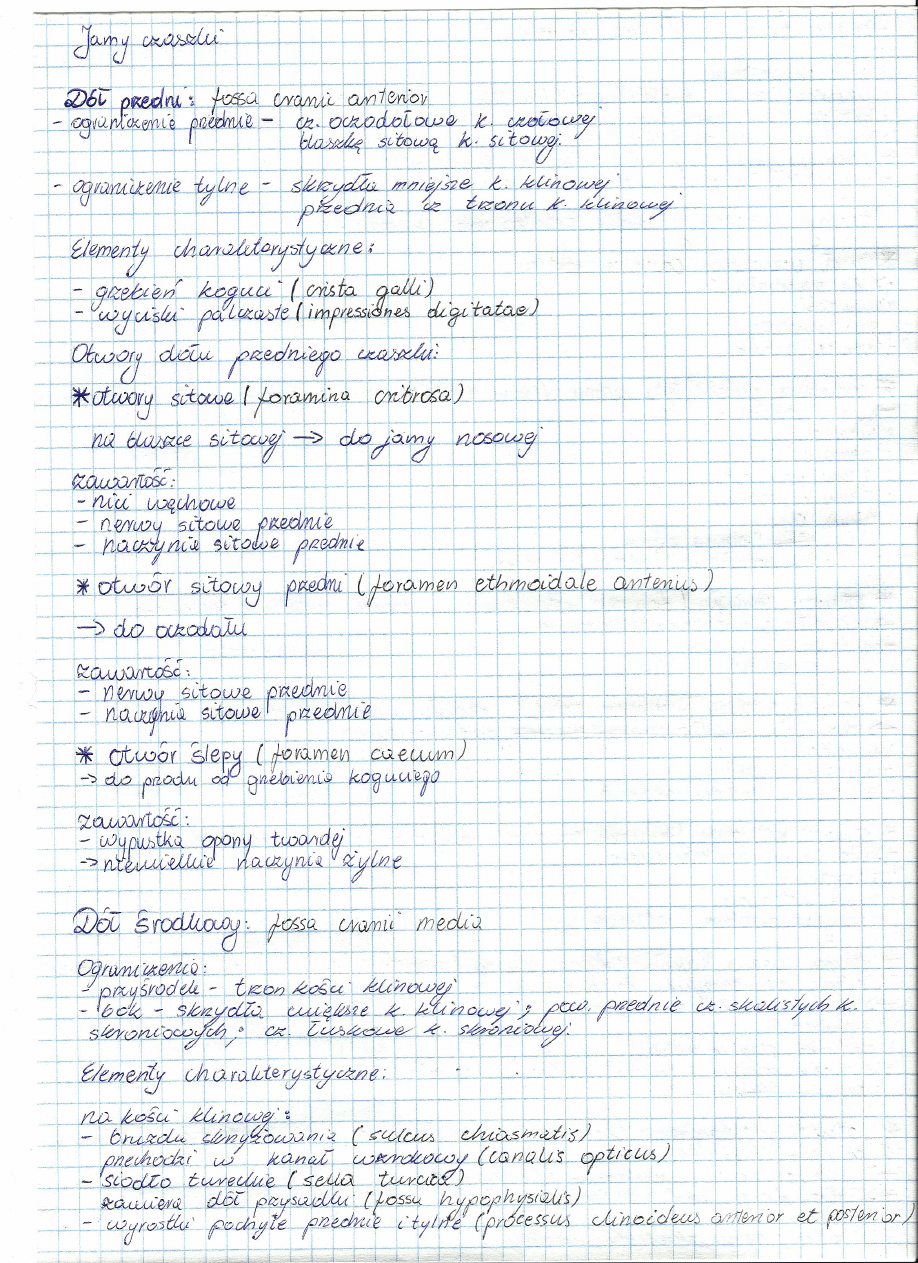 Jamy czaszki
Dół przedni: fossa cranii anterior
- ograniczenie przednie - cz. oczodołowe k. czołowej
blaszkę sitową k. sitowej.
- ograniczenie tylne - skrzydła mniejsze k. klinowej
przednia cz trzonu k. klinowej
Elementy charakterystyczne:
- grzebień koguci (crista galli)
- wyciski palczaste (impressiones digitatae)
Otwory dołu przedniego czaszki:
* otwory sitowe (foramina cribrosa)
na blaszce sitowej → do jamy nosowej
zawartość:
- nici węchowe
- nerwy sitowe przednie
- naczynia sitowe przednie
* otwór sitowy przedni (foramen ethmoidale anterius)
→ do oczodołu
zawartość:
- nerwy sitowe przednie
- naczynia sitowe przednie
* otwór ślepy (foramen caecum)
→ do przodu od grzebienia koguciego
zawartość:
- wypustka opony twardej
→ niewielkie naczynia żylne
Dół środkowy: fossa cranii media
Ograniczenia:
- przyśrodek - trzon kości klinowej
- bok - skrzydła większe k. klinowej; pow. przednie cz. skalistych k.
skroniowych; cz. łuskowe k. skroniowej.
Elementy charakterystyczne:
na kości klinowej:
- bruzda skrzyżowania (sulcus chiasmatis)
przechodzi w kanał wzrokowy (canalis opticus)
- siodło tureckie (sella turcica)
zawiera dół przysadki (fossa hypophysialis)
- wyrostki pochyłe przednie i tylne (processus clinoideus anterior et posterior)